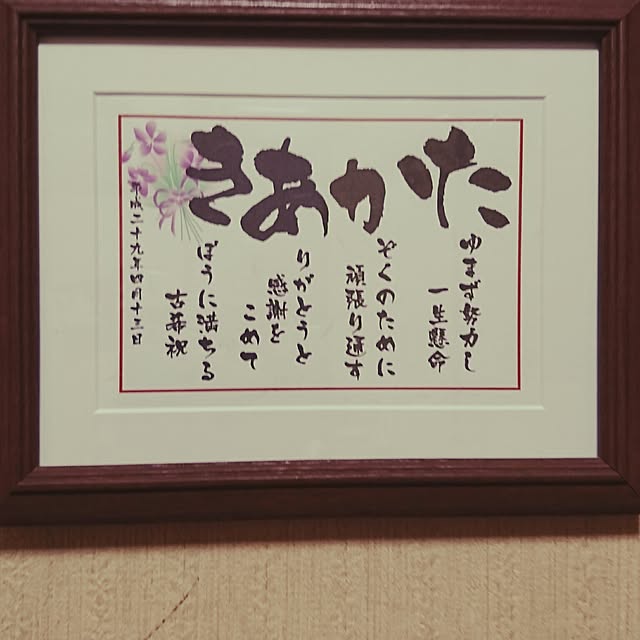 たゆまず努力し
一生懸命
かぞくのために
頑張り通す
ありがとうと
感謝を
こめて
きぼうに満ちる
古希祝
平成二十九年四月十三日